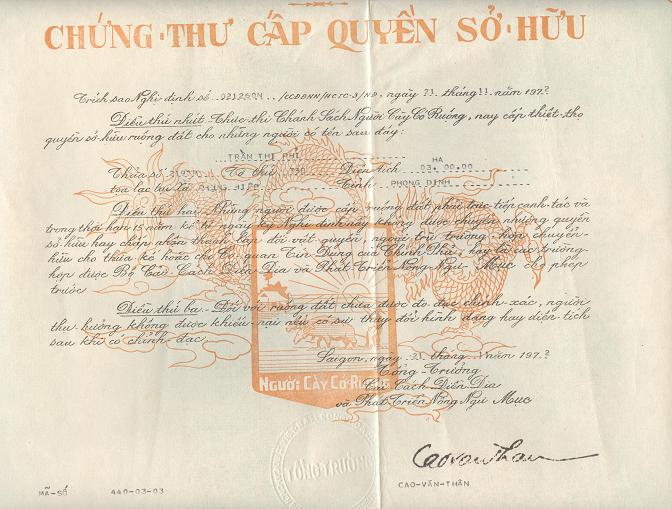 CHỨNG-THƯ CẤP QUYỀN SỞ-HỮU
Trích sao Nghị-định số 0212504 /CCĐĐNN/HCTC-3/NĐ, ngày tháng 11 năm 197?
Điều thứ nhứt - Thực-thi Chánh Sách Người Cày Có Ruộng, nay cấp thiệt-thọ
quyền sở-hữu ruộng đất cho những người có tên sau đây:
TRẦN THỊ PHỈ HA
Thửa số Tờ thứ 790 Diện Tích 03.00.00
tọa lạc tại Xã Tỉnh PHONG DINH
Điều thứ hai - Những người được cấp ruộng đất phải trực tiếp canh-tác và
trong thời hạn 15 năm kể từ ngày ký Nghị-định này không được chuyển nhượng quyền
sở hữu hay chấp nhận thành lập đối vật quyền, ngoại trừ trường-hợp chuyển-
hữu cho thừa kế hoặc cho Cơ-quan Tín Dụng của Chính Phủ, hay là các trường-
hợp được Bộ Cải Cách Điền Địa và Phát Triển Nông Ngư Mục cho phép
trước
Điều thứ ba - Đối với ruộng đất chưa được đo đạc chính-xác, người
thụ-hưởng không được khiếu-nại nếu có sự thay đổi hình dạng hay diện-tích
sau khi có chỉnh-đạc
Saigon, ngày tháng năm 197?
Tổng-Trưởng
Cải Cách Điền-Địa
và Phát Triển Nông Ngư Mục
NGƯỜI CÀY CÓ RUỘNG
TỔNG TRƯỞNG
Caovanthan
MÃ-SỐ 440-03-03 CAO-VĂN-THÂN